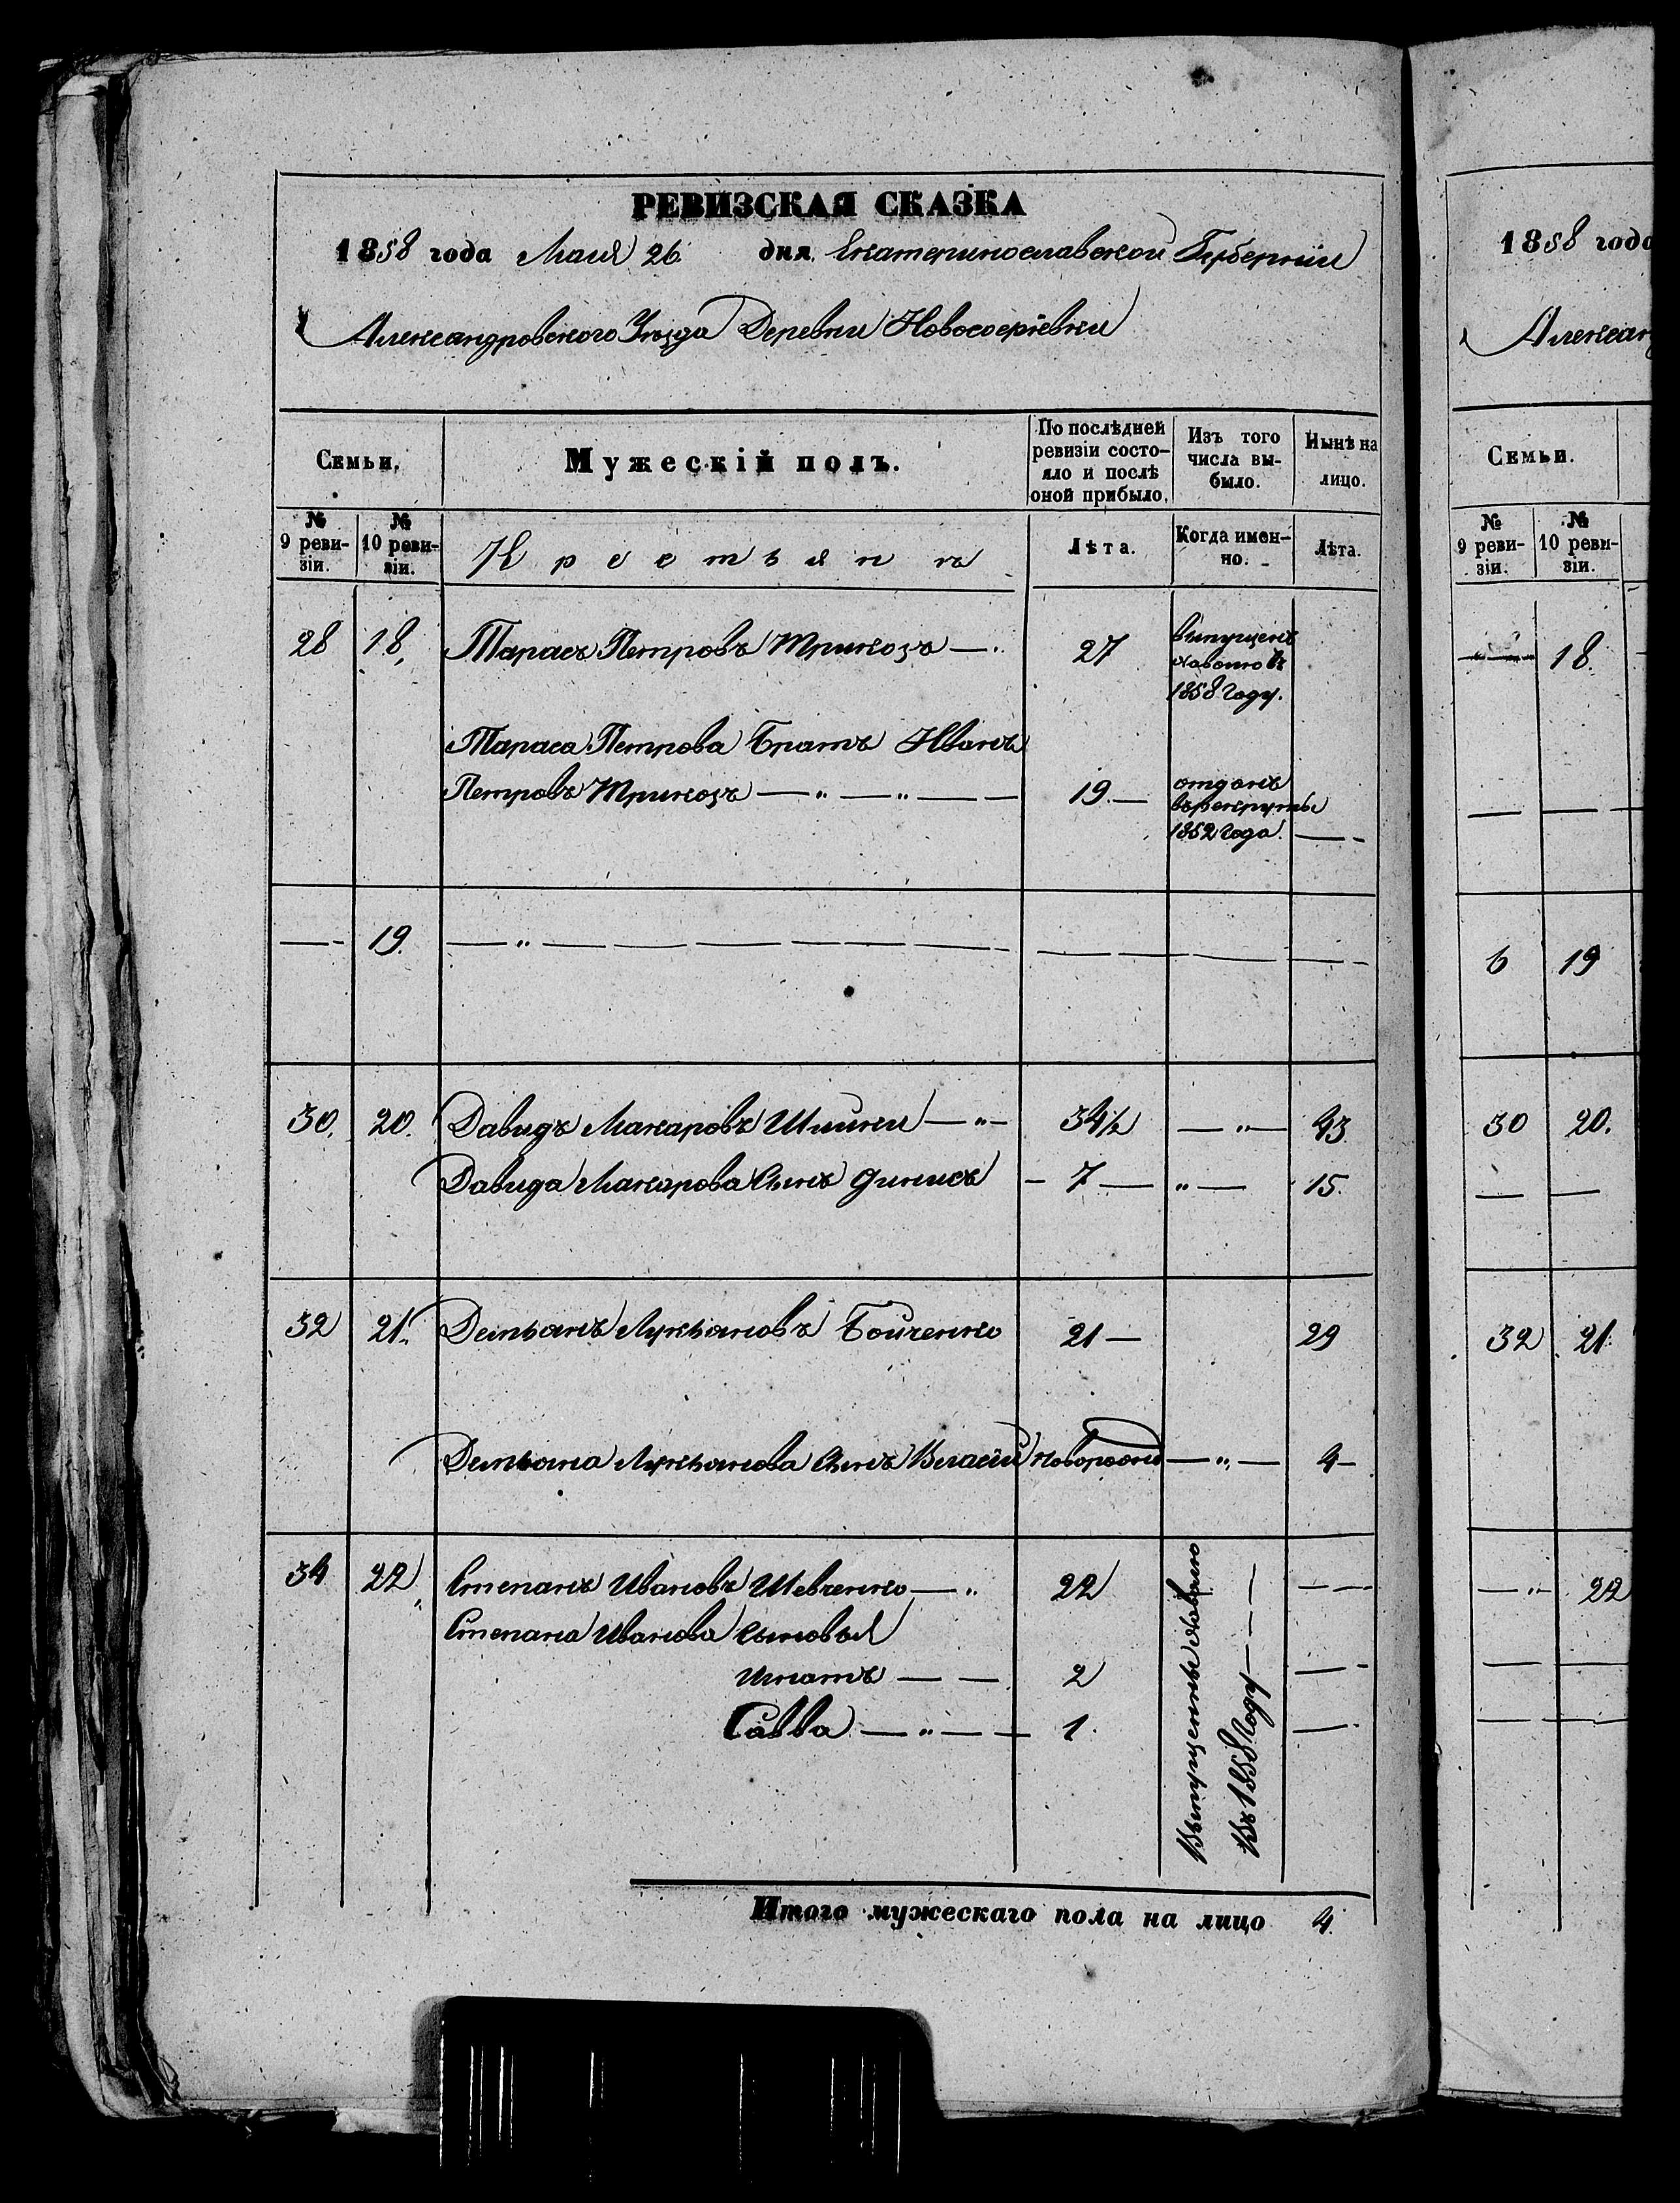 РЕВИЗСКАЯ СКАЗКА
1858 года Маия 26 дня Екатеринославской Губернии
Александровского Уезда Деревни Новософіевки
Семьи. Мужескій полъ. По послѣдней ревизіи состояло и послѣ оной прибыло. Изъ того числа выбыло. Нынѣ на лицо.
№ 9 ревизіи. № 10 ревизіи. Крестьянъ Лѣта. Когда именно. Лѣта.
28 18. Тарасъ Петровъ Трикозъ — 27 выпущенъ
наволю въ
1858 году.
Тараса Петрова Братъ Иванъ
Петровъ Трикозъ — „ — „ — — 19 — отданъ
въ рекруты
1852 года. —
— 19. — „ — — — — — —
30. 20. Давидъ Макаровъ — „ — 34½ — „ — 43.
Давида Макарова Сынъ — 7 — „ — 15.
32 21. Демьянъ Лукьяновъ Бойченко 21 — 29
Демьяна Лукьянова Сынъ Власий — „ — 4 —
34 22, Степанъ Ивановъ Шевченко — „ 22 — —
Степана Иванова сыновья
Игнатъ — — 2 — -
Савва — „ — — 1. — -
Выпущенны наволю
въ 1858 году — — —
Итого мужескаго пола на лицо 4.
1858 года
Александ
Семьи.
№ 9 ревизіи. № 10 ревизіи.
— 18.
— —
6 19
30 20.
— —
32 21.
— „ — 22
— —
— —